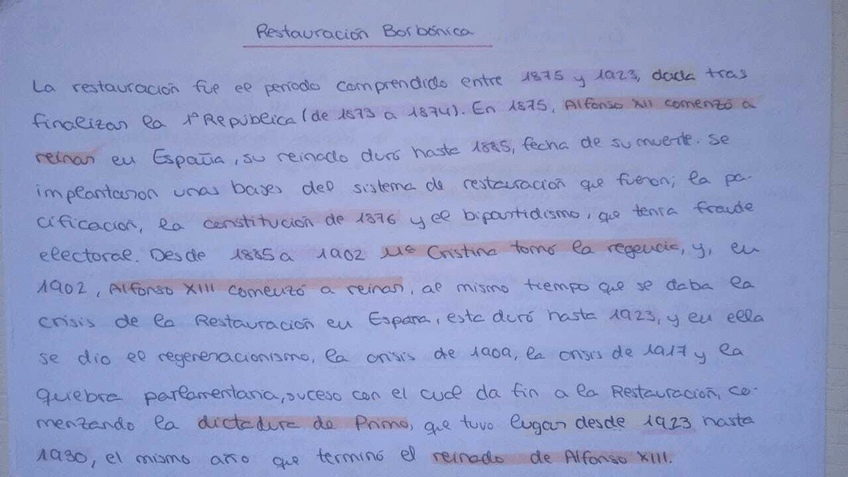 Restauración Borbónica
La restauración fue el periodo comprendido entre 1875 y 1923, dada tras
finalizar la 1ª República (de 1873 a 1874). En 1875, Alfonso XII comenzó a
reinar en España, su reinado duró hasta 1885, fecha de su muerte. Se
implantaron unas bases del sistema de restauración que fueron; la pa-
cificación, la constitución de 1876 y el bipartidismo, que tenía fraude
electoral. Desde 1885 a 1902 Mª Cristina tomó la regencia, y, en
1902, Alfonso XIII comenzó a reinar, al mismo tiempo que se daba la
crisis de la Restauración en España, esta duró hasta 1923, y en ella
se dio el regeneracionismo, la crisis de 1909, la crisis de 1917 y la
quiebra parlamentaria, suceso con el cual da fin a la Restauración, co-
menzando la dictadura de Primo, que tuvo lugar desde 1923 hasta
1930, el mismo año que terminó el reinado de Alfonso XIII.